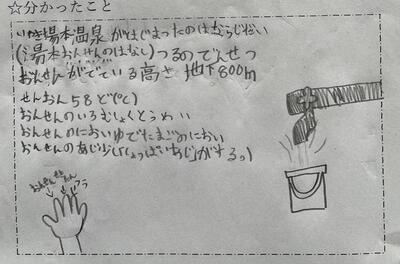 ☆分かったこと
いわき湯本温泉がはじまったのはならじだい
(湯本おんせんのはなし)つるのでんせつ
おんせんがでている高さ 地下800m
せんおん58ど(℃)
おんせんのいろむしょくとうめい
おんせんのにおいゆでたまごのにおい
おんせんのあじ少し(しょっぱいあじ)がする。)